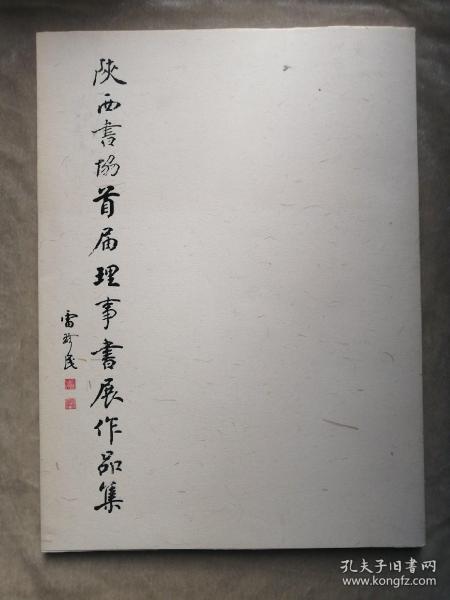 陕西書協首届理事書展作品集
雷珍民
孔夫子旧书网
www.kongfz.com